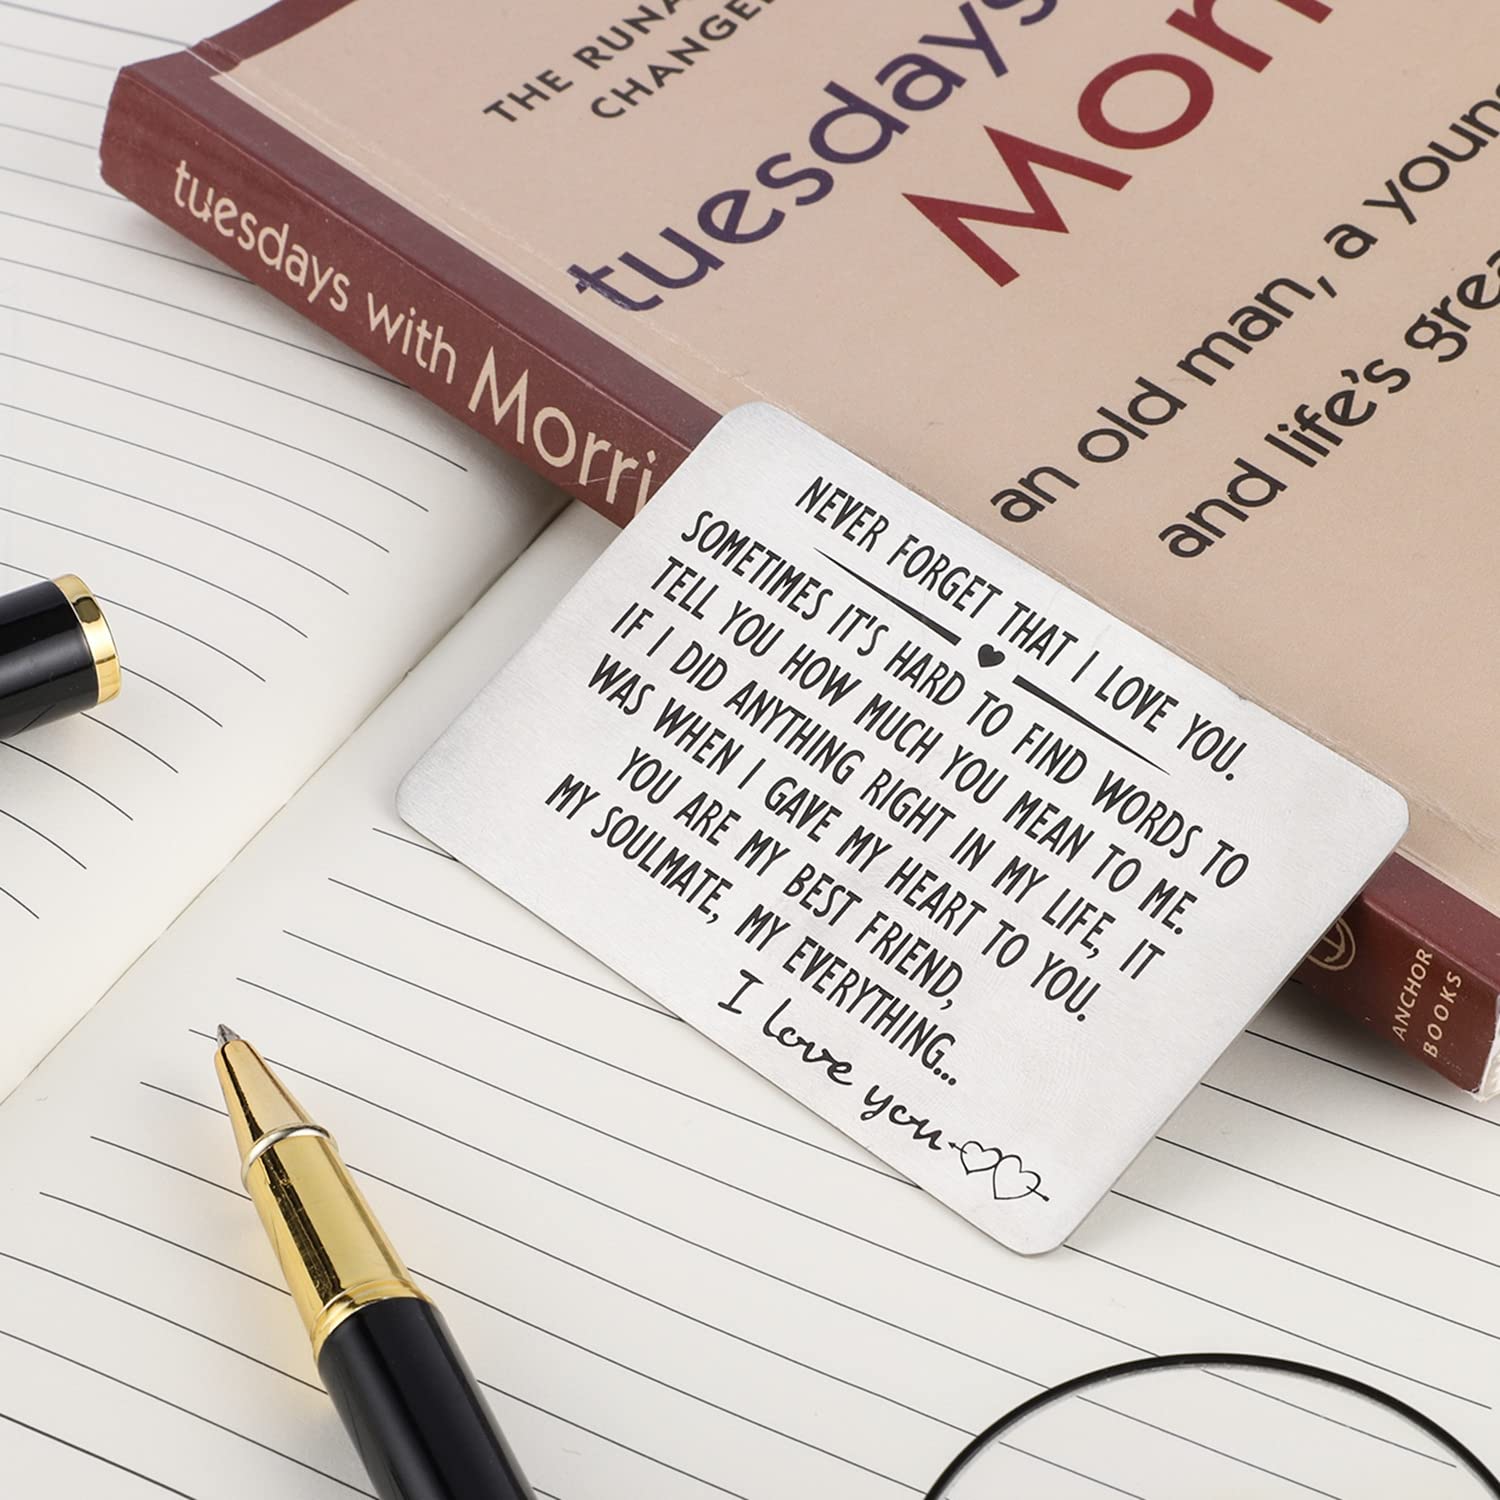 THE
CHANGE
tuesdays
an old man, a
and life's
tuesdays with
NEVER FORGET THAT I LOVE YOU.
SOMETIMES IT'S HARD TO FIND WORDS TO
TELL YOU HOW MUCH YOU MEAN TO ME.
IF I DID ANYTHING RIGHT IN MY LIFE, IT
WAS WHEN I GAVE MY HEART TO YOU.
YOU ARE MY BEST FRIEND,
MY SOULMATE, MY EVERYTHING...
I love you
ANCHOR
BOOKS